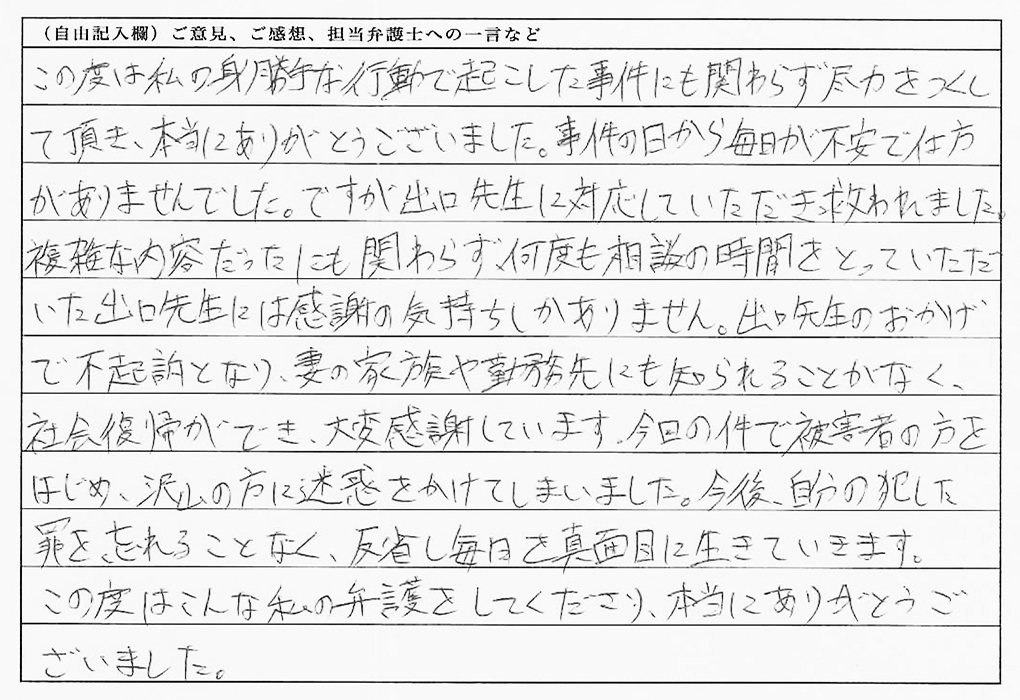 (自由記入欄)ご意見、ご感想、担当弁護士への一言など
この度は私の身勝手な行動で起こした事件にも関わらず尽力をつくし
て頂き、本当にありがとうございました。事件の日から毎日が不安で仕方
がありませんでした。ですが出口先生に対応していただき救われました。
複雑な内容だったにも関わらず、何度も相談の時間をとっていただ
いた出口先生には感謝の気持ちしかありません。出口先生のおかげ
で不起訴となり、妻の家族や勤務先にも知られることがなく、
社会復帰ができ、大変感謝しています。今回の件で被害者の方を
はじめ、沢山の方に迷惑をかけてしまいました。今後、自分の犯した
罪を忘れることなく、反省し毎日を真面目に生きていきます。
この度はこんな私の弁護をしてくださり、本当にありがとうご
ざいました。